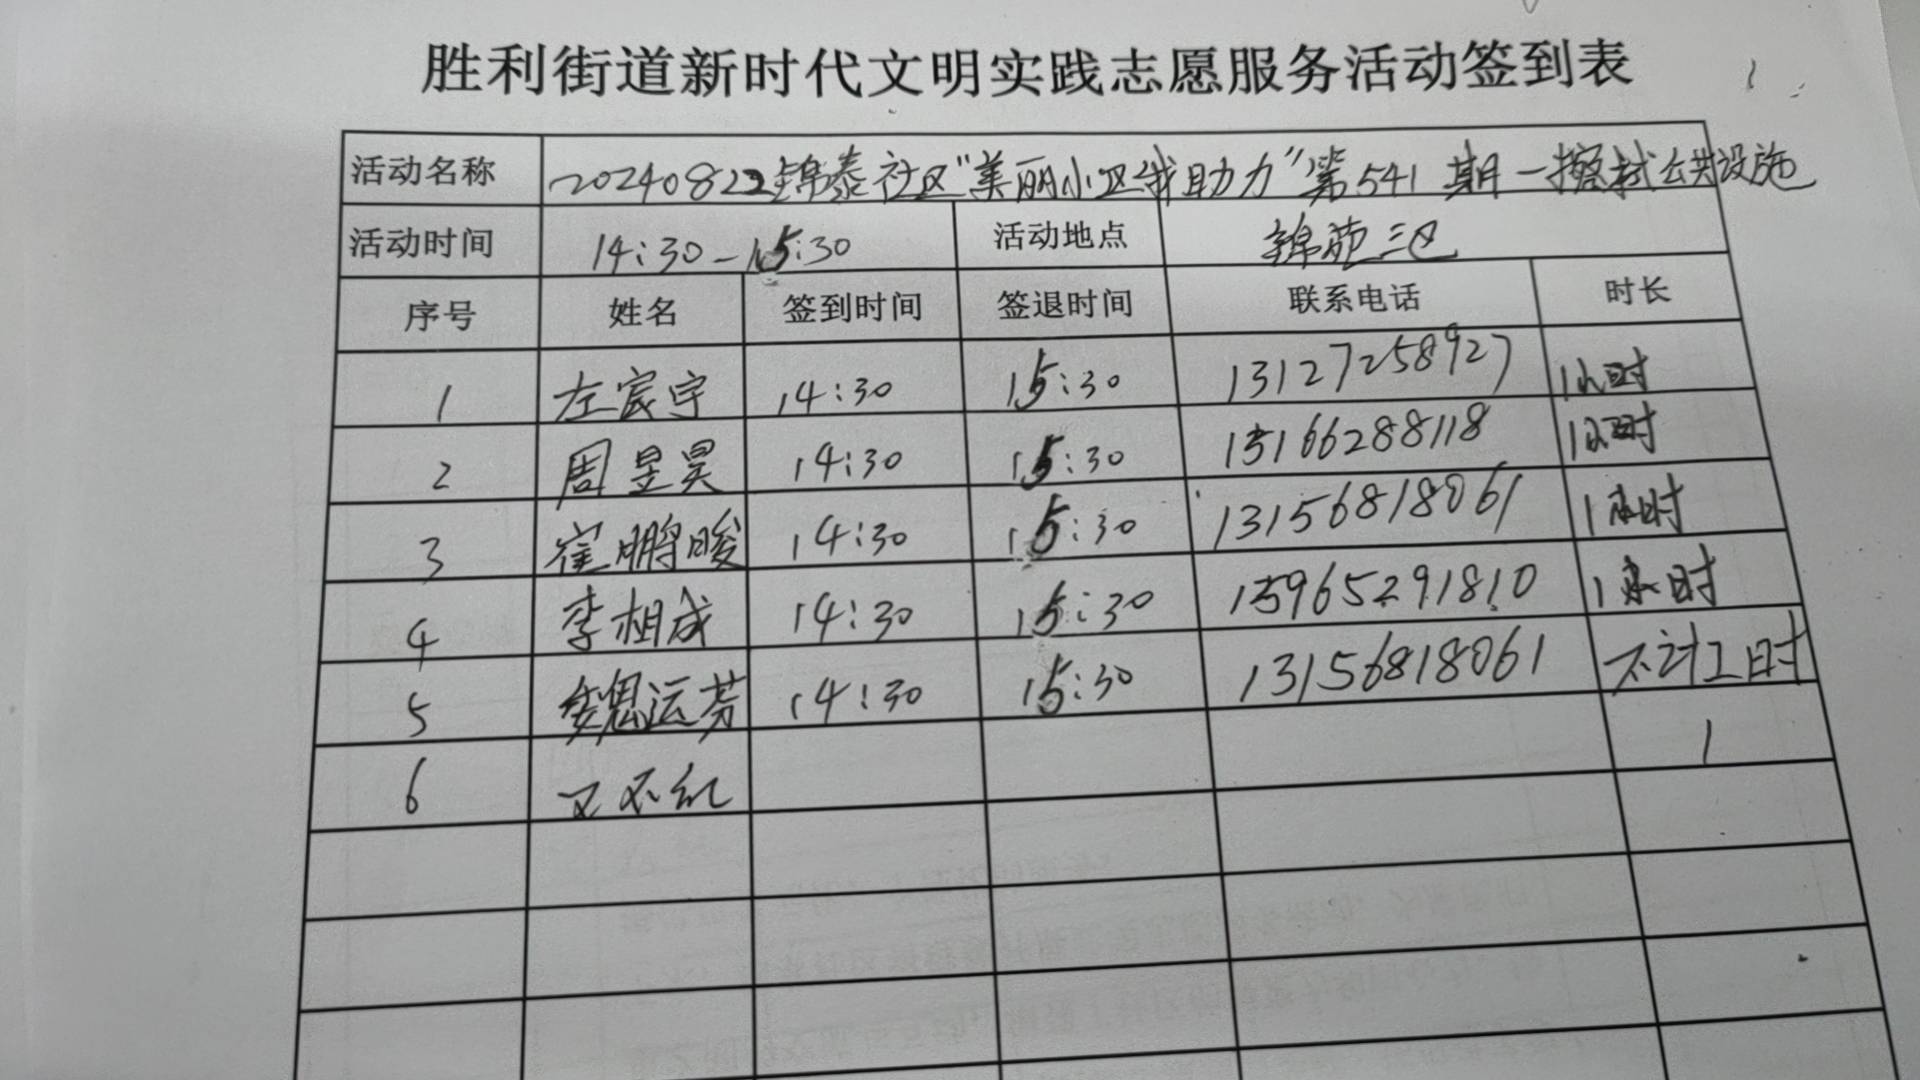 胜利街道新时代文明实践志愿服务活动签到表
活动名称 20240822锦泰社区"美丽小区我助力"第541期一擦拭公共设施
活动时间 14:30-15:30 活动地点 锦苑三区
序号 姓名 签到时间 签退时间 联系电话 时长
1 左宸宇 14:30 15:30 13127258927 1小时
2 周昱昊 14:30 15:30 15166288118 1小时
3 崔鹏晙 14:30 15:30 13156818061 1小时
4 李相成 14:30 15:30 15965291810 1小时
5 魏运芳 14:30 15:30 13156818061 不计工时
6 1